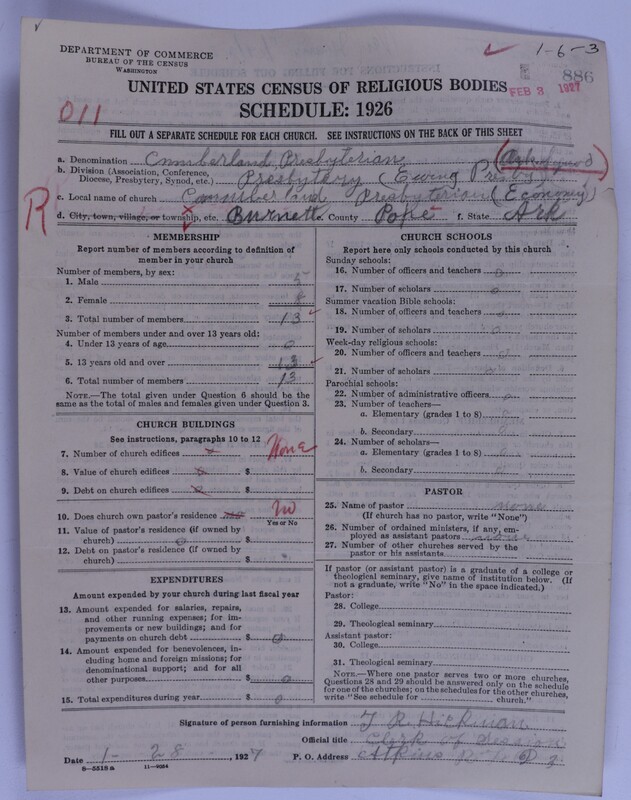 DEPARTMENT OF COMMERCE
BUREAU OF THE CENSUS
WASHINGTON
1-6-3
886
UNITED STATES CENSUS OF RELIGIOUS BODIES
FEB 3 1927
SCHEDULE: 1926
011
FILL OUT A SEPARATE SCHEDULE FOR EACH CHURCH. SEE INSTRUCTIONS ON THE BACK OF THIS SHEET
a. Denomination Cumberland Presbyterian (Ark Synod)
b. Division (Association, Conference, Diocese, Presbytery, Synod, etc.) Presbytery (Ewing Presbytery
c. Local name of church Cumberland Presbyterian (Economy)
R
d. City, town, village, or township, etc. Burnett County Pope f. State Ark
MEMBERSHIP
Report number of members according to definition of member in your church
Number of members, by sex:
1. Male 5
2. Female 8
3. Total number of members 13
Number of members under and over 13 years old:
4. Under 13 years of age 0
5. 13 years old and over 13
6. Total number of members 13
NOTE.—The total given under Question 6 should be the same as the total of males and females given under Question 3.
CHURCH BUILDINGS
See instructions, paragraphs 10 to 12
7. Number of church edifices None
8. Value of church edifices $
9. Debt on church edifices $
10. Does church own pastor's residence no
Yes or No
11. Value of pastor's residence (if owned by church) 0 $
12. Debt on pastor's residence (if owned by church) $
EXPENDITURES
Amount expended by your church during last fiscal year
13. Amount expended for salaries, repairs, and other running expenses; for improvements or new buildings; and for payments on church debt $ 0
14. Amount expended for benevolences, including home and foreign missions; for denominational support; and for all other purposes $ 0
15. Total expenditures during year $ 0
CHURCH SCHOOLS
Report here only schools conducted by this church
Sunday schools:
16. Number of officers and teachers 0
17. Number of scholars 0
Summer vacation Bible schools:
18. Number of officers and teachers 0
19. Number of scholars 0
Week-day religious schools:
20. Number of officers and teachers 0
21. Number of scholars 0
Parochial schools:
22. Number of administrative officers 0
23. Number of teachers—
a. Elementary (grades 1 to 8)
b. Secondary
24. Number of scholars—
a. Elementary (grades 1 to 8)
b. Secondary
PASTOR
25. Name of pastor none
(If church has no pastor, write "None")
26. Number of ordained ministers, if any, employed as assistant pastors none
27. Number of other churches served by the pastor or his assistants
If pastor (or assistant pastor) is a graduate of a college or theological seminary, give name of institution below. (If not a graduate, write "No" in the space indicated.)
Pastor:
28. College
29. Theological seminary
Assistant pastor:
30. College
31. Theological seminary
NOTE.—Where one pastor serves two or more churches, Questions 28 and 29 should be answered only on the schedule for one of the churches; on the schedules for the other churches, write "See schedule for church."
Signature of person furnishing information J R Hickman
Official title Clerk of Session
Date 1-28, 1927 P. O. Address Atkins
8—5518 a 11—9024